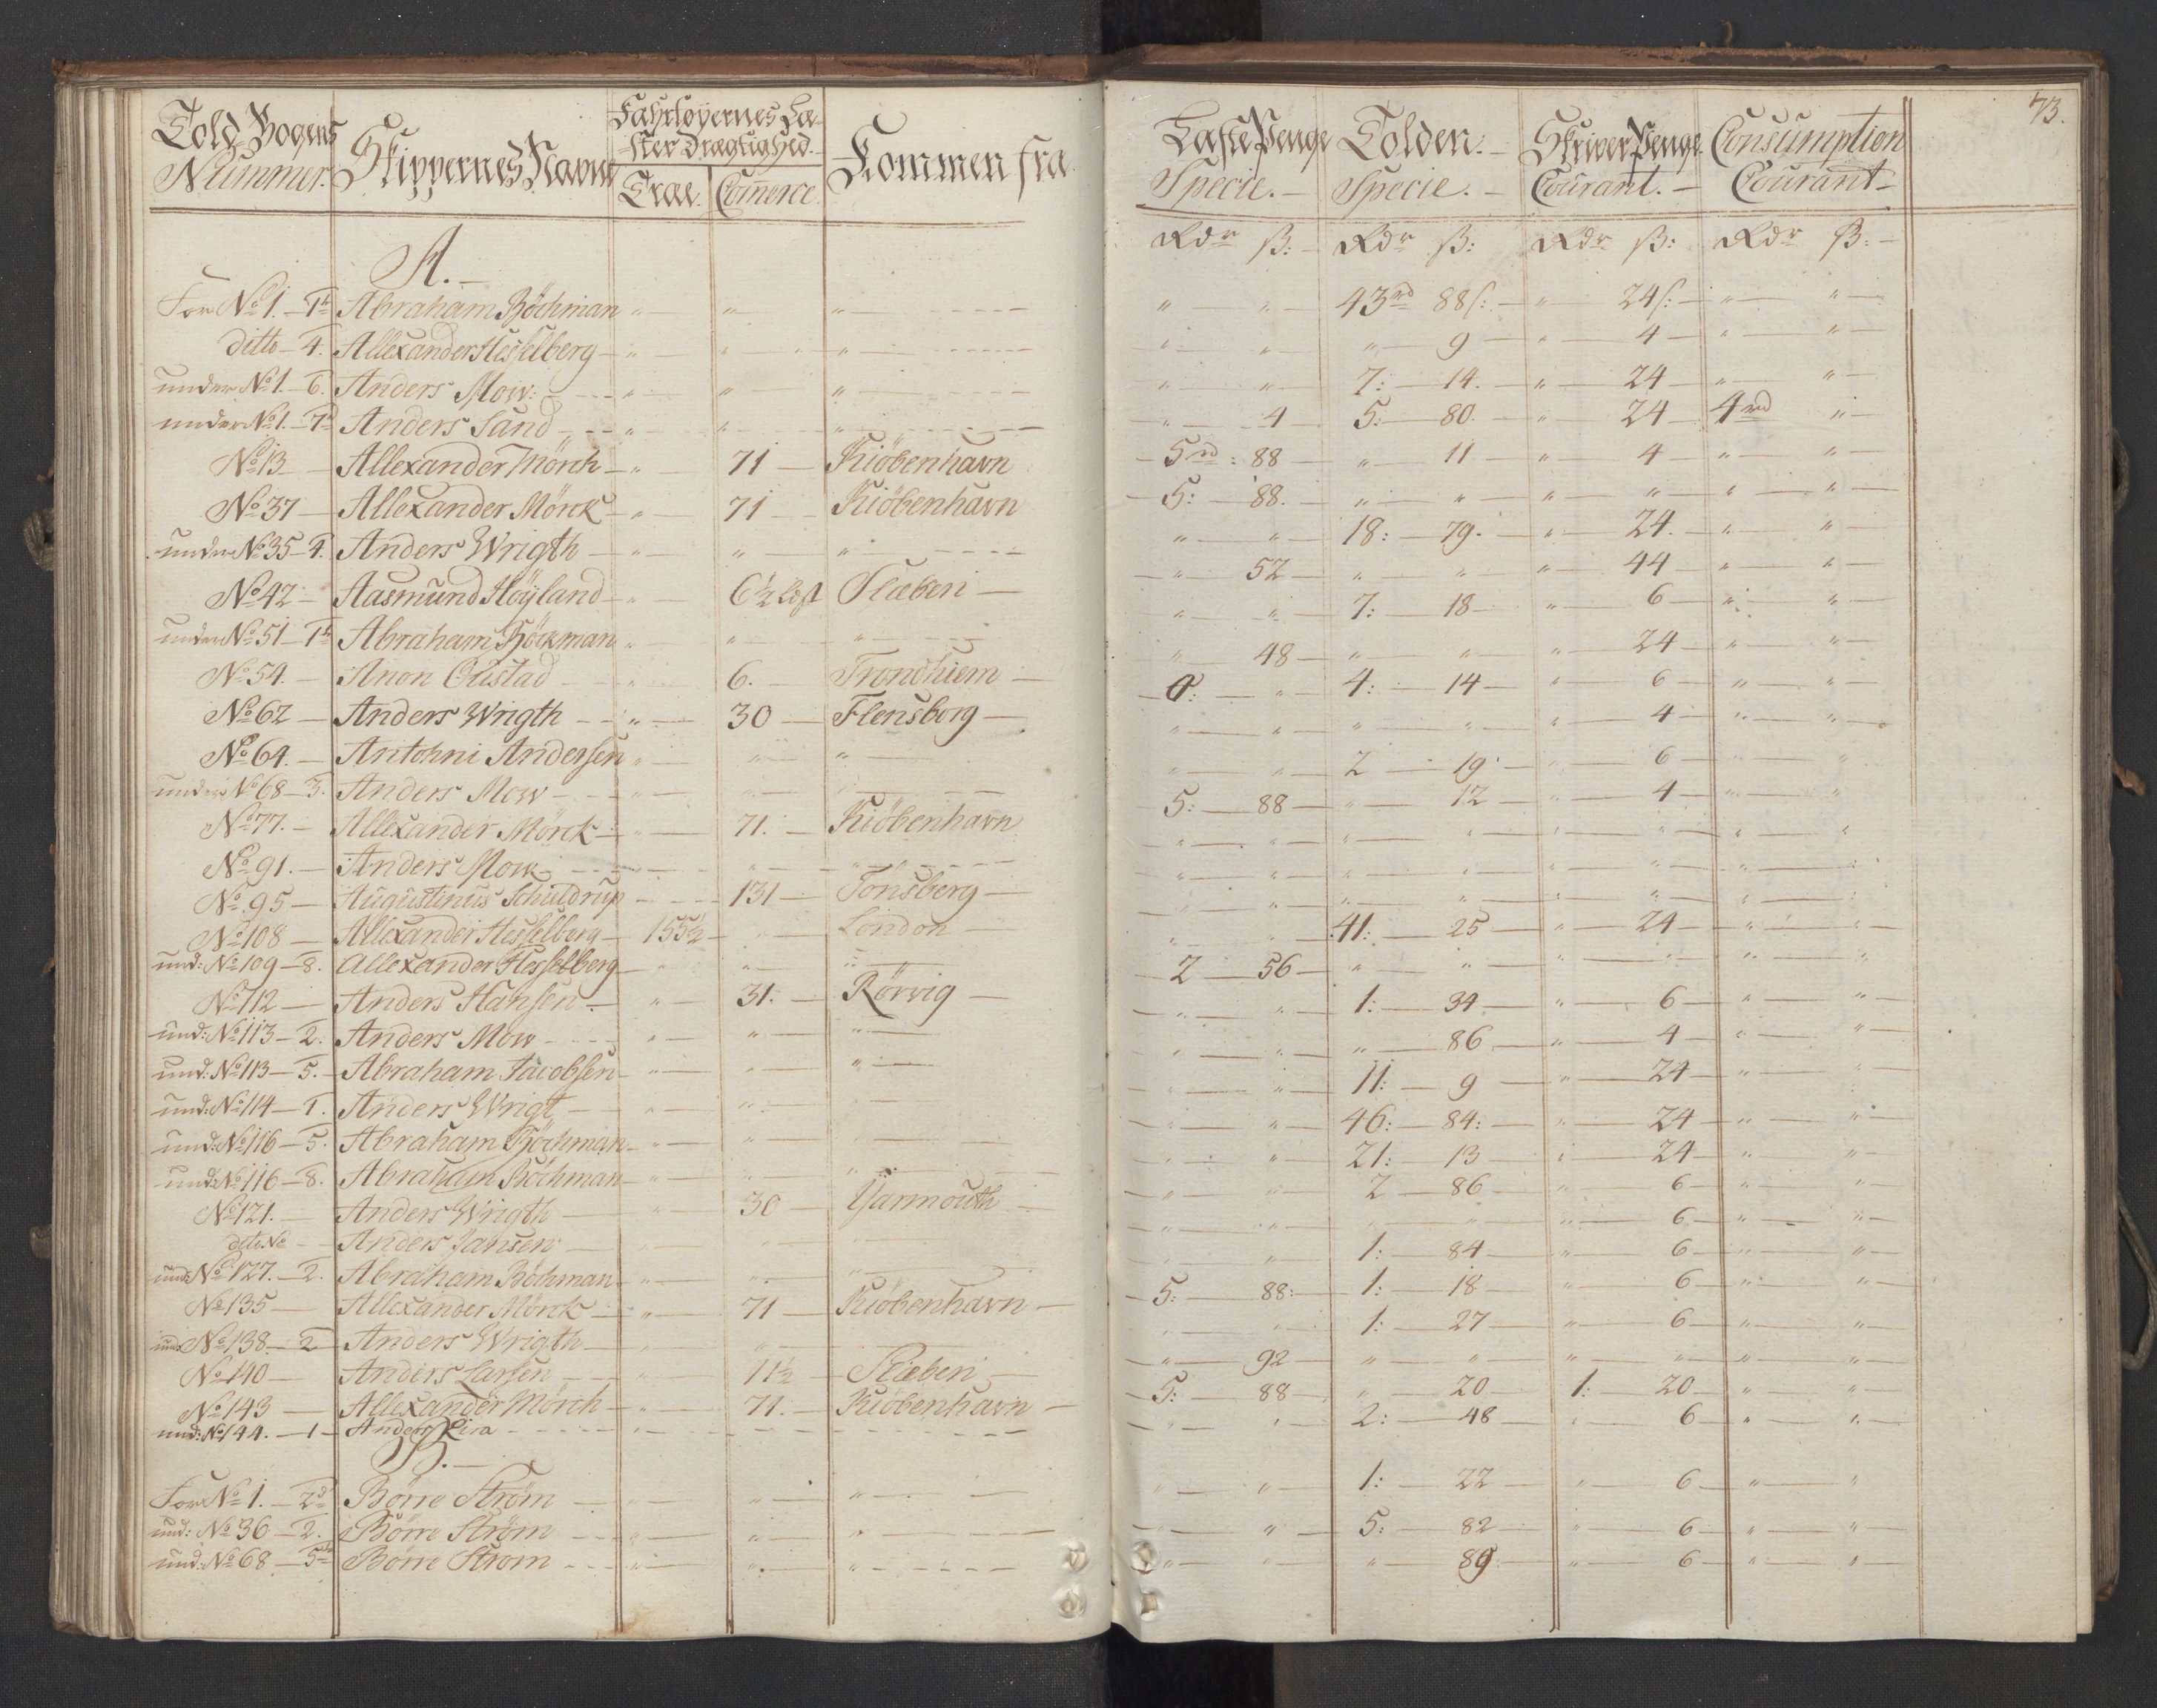 73.
Told Bogens Nummer. | Skippernes Navne | Fahrtøyernes Læster Drægtighed. Træl. | Comerce. | Kommen fra | Laste Penge Specie. | Tolden. Specie. | Skriver Penge Courant. | Consumption Courant
Rdr ß: | Rdr ß: | Rdr ß: | Rdr ß:
A.
For No 1. - 1t | Abraham Böchman | " | " | " | " " | 43rd 88ß: | " 24ß: | " "
ditto - 4. | Allexander Hesselberg | " | " | " | " " | " 9 | " 4 | " "
under No 1 - 6. | Anders Mow: | " | " | " | " " | 7: 14. | " 24 | " "
under No 1. - 7d | Anders Sand | " | " | " | " 4 | 5: 80. | " 24 | 4rd "
No 13 | Allexander Mörch | " | 71 | Kiöbenhavn | 5rd: 88 | " 11 | " 4 | " "
No 37 | Allexander Mörck | " | 71 | Kiöbenhavn | 5: 88. | " " | " " | " "
under No 35 - 4. | Anders Wrigth | " | " | " | " " | 18: 79. | " 24. | " "
No 42 | Aasmund Höyland | " | 6½ Lest | Flæben | " 52 | " " | " 44 | " "
under No 51 - 1t | Abraham Böckman | " | " | " | " " | 7: 18 | " 6 | " "
No 54. | Anon Oustad | " | 6. | Trondhiem | " 48 | " " | " 24 | " "
No 62 | Anders Wrigth | " | 30 | Flensborg | " | 4: 14 | " 6 | " "
No 64. | Antohni Andersen | " | " | " | " " | " " | " 4 | " "
under No 68 - 3. | Anders Mow | " | " | " | " " | 2 19. | " 6 | " "
No 77. | Allexander Mörck | " | 71. | Kiöbenhavn | 5: 88 | " 12 | " 4 | " "
No 91. | Anders Mow | " | " | " | " " | " " | " " | " "
No 95 | Augustinus Schuldrup | | 131 | Tönsberg | " " | " " | " " | " "
No 108 | Allexander Hesselberg | 155½ | " | London | " " | " " | " " | " "
und: No 109 - 8. | Allexander Hesselberg | " | " | " | " " | 41: 25 | " 24 | " "
No 112 | Anders Hansen | " | 31. | Rörvig | 2 56 | " " | " " | " "
und: No 113 - 2. | Anders Mow | " | " | " | " " | 1: 34 | " 6 | " "
und: No 113 - 5. | Abraham Jacobsen | " | " | " | " " | " 86 | " 4 | " "
und: No 114 - 1. | Anders Wrigt | " | " | " | " " | 11: 9 | " 24 | " "
und: No 116 - 5. | Abraham Böchman | " | " | " | " " | 46: 84: | " 24 | " "
und: No 116 - 8. | Abraham Böchman | " | " | " | " " | 21: 13 | " 24 | " "
No 121. | Anders Wrigth | " | 30 | Yarmouth | " " | 2 86 | " 6 | " "
dito No | Anders Jansen | " | " | " | " " | " " | " 6 | " "
und: No 127. - 2. | Abraham Böchman | " | " | " | " " | 1: 84 | " 6 | " "
No 135 | Allexander Mörck | " | 71 | Kiöbenhavn | 5: 88: | 1: 18 | " 6 | " "
und: No 138. - 2 | Anders Wrigth | " | " | " | " " | 1: 27 | " 6 | " "
No 140 | Anders Larsen | " | 11½ | Flæben | " 92 | " " | " " | " "
No 143 | Allexander Mörch | " | 71. | Kiöbenhavn | 5: 88 | " 20 | 1: 20 | " "
und: No 144. - 1 | Anders Lira | " | | | " " | 2: 48 | " 6 | " "
B.
For No 1. - 2d | Börre Ström | " | " | " | " " | 1: 22 | " 6 | " "
und: No 36 - 2. | Börre Ström | " | " | " | " " | 5: 82 | " 6 | " "
und: No 68 - 5t | Börre Strøm | " | " | " | " " | " 89 | " 6 | " "